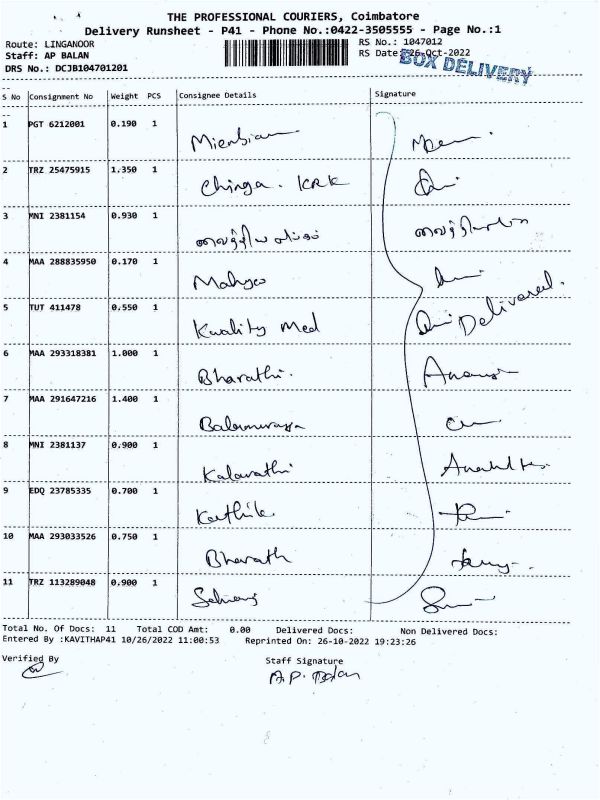 THE PROFESSIONAL COURIERS, Coimbatore
Delivery Runsheet - P41 - Phone No.:0422-3505555 - Page No.:1
Route: LINGANOOR RS No.: 1047012
Staff: AP BALAN RS Date: 26-Oct-2022
BOX DELIVERY
DRS No.: DCJB104701201
S No Consignment No Weight PCS Consignee Details Signature
1 PGT 6212001 0.190 1
2 TRZ 25475915 1.350 1 Chinga. KRK
3 MNI 2381154 0.930 1
4 MAA 288835950 0.170 1 Mahyco
5 TUT 411478 0.550 1 Kwality Med Delivered.
6 MAA 293318381 1.000 1 Bharathi.
7 MAA 291647216 1.400 1
8 MNI 2381137 0.900 1 Kalavathi
9 EDQ 23785335 0.700 1 Karthik
10 MAA 293033526 0.750 1 Bharath
11 TRZ 113289048 0.900 1
Total No. Of Docs: 11 Total COD Amt: 0.00 Delivered Docs: Non Delivered Docs:
Entered By :KAVITHAP41 10/26/2022 11:00:53 Reprinted On: 26-10-2022 19:23:26
Verified By Staff Signature
A.P. Balan